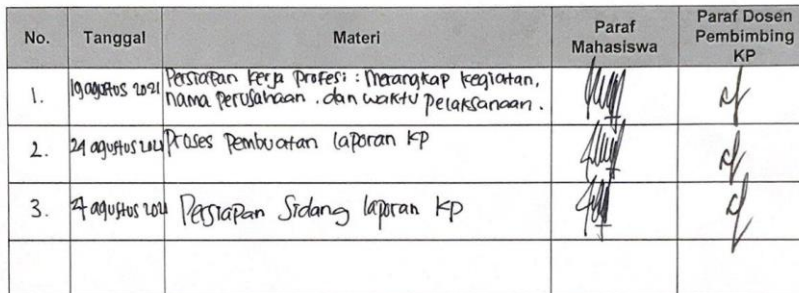 No. Tanggal Materi Paraf Mahasiswa Paraf Dosen Pembimbing KP
1. 19 agustus 2021 Persiapan kerja profesi : Merangkap kegiatan,
nama perusahaan . dan waktu pelaksanaan .
2. 24 agustus 2021 Proses Pembuatan laporan KP
3. agustus 2021 Persiapan Sidang laporan KP